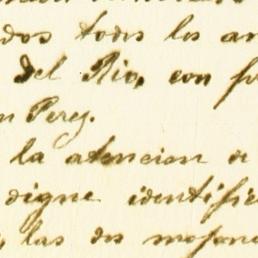 dos todos los an
del Rio, con f
n Perez.
la atencion a
digne identific
las dos mofone